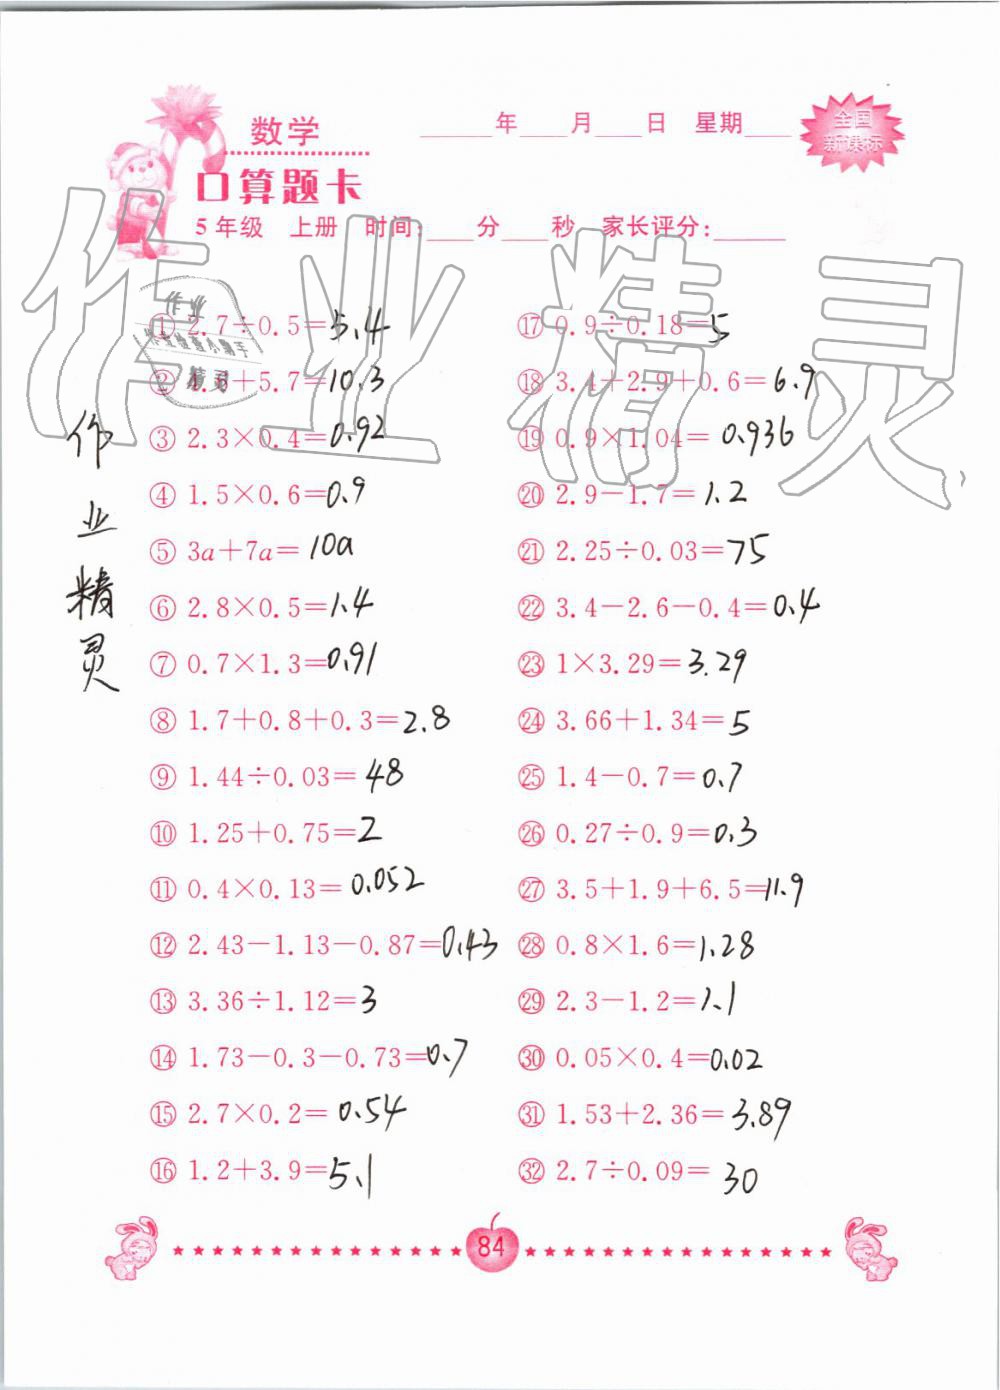 数学
____年____月____日 星期____
全国
新课标
口算题卡
5年级 上册 时间:____分____秒 家长评分:______
作业精灵
作业
作业检查小助手
精灵
作业精灵
① 2.7÷0.5=5.4
② 4.6+5.7=10.3
③ 2.3×0.4=0.92
④ 1.5×0.6=0.9
⑤ 3a+7a=10a
⑥ 2.8×0.5=1.4
⑦ 0.7×1.3=0.91
⑧ 1.7+0.8+0.3=2.8
⑨ 1.44÷0.03=48
⑩ 1.25+0.75=2
⑪ 0.4×0.13=0.052
⑫ 2.43-1.13-0.87=0.43
⑬ 3.36÷1.12=3
⑭ 1.73-0.3-0.73=0.7
⑮ 2.7×0.2=0.54
⑯ 1.2+3.9=5.1
⑰ 0.9÷0.18=5
⑱ 3.4+2.9+0.6=6.9
⑲ 0.9×1.04=0.936
⑳ 2.9-1.7=1.2
㉑ 2.25÷0.03=75
㉒ 3.4-2.6-0.4=0.4
㉓ 1×3.29=3.29
㉔ 3.66+1.34=5
㉕ 1.4-0.7=0.7
㉖ 0.27÷0.9=0.3
㉗ 3.5+1.9+6.5=11.9
㉘ 0.8×1.6=1.28
㉙ 2.3-1.2=1.1
㉚ 0.05×0.4=0.02
㉛ 1.53+2.36=3.89
㉜ 2.7÷0.09=30
84